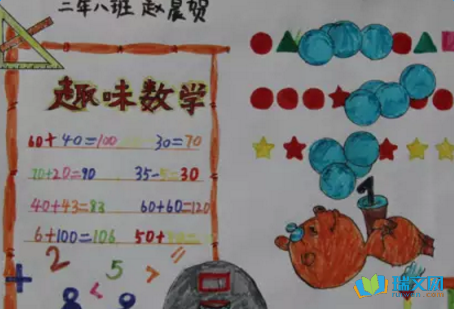 二年八班 赵晨贺
趣味数学
60+40=100 30=70
70+20=90 35-5=30
40+43=83 60+60=120
6+100=106 50+
1
2 5 > =
+ 8 < 8
瑞文网